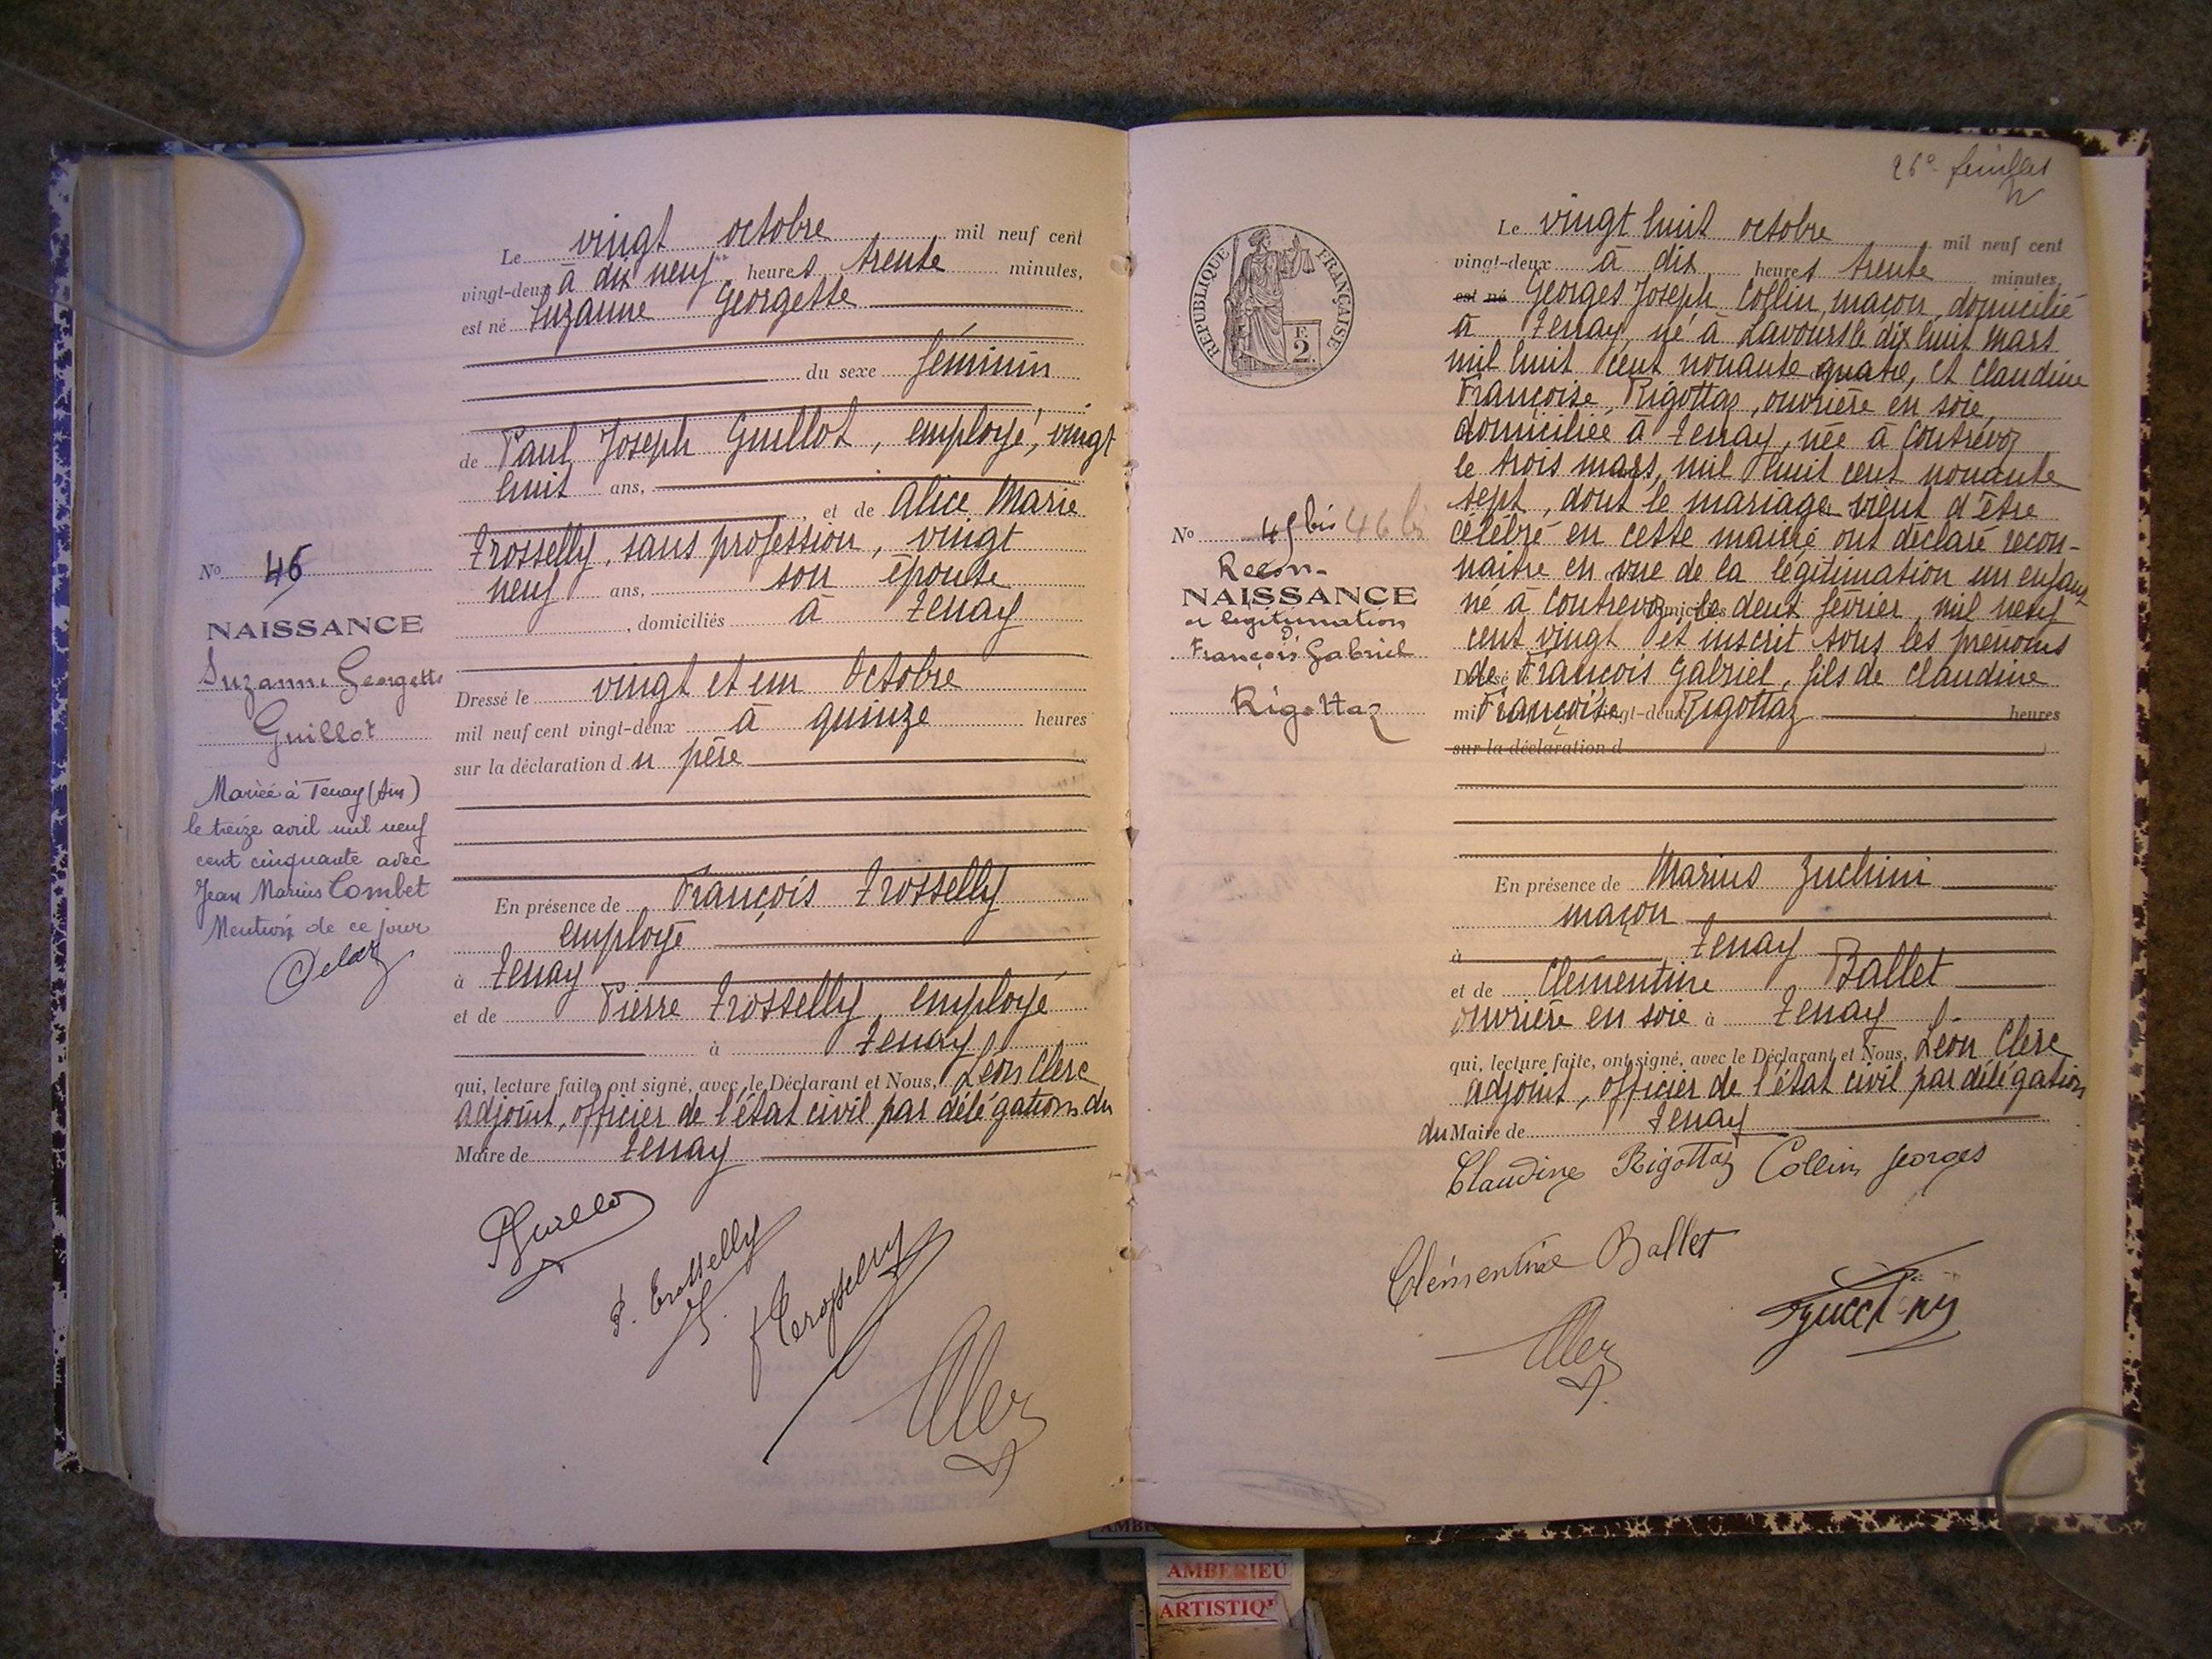 Le vingt octobre mil neuf cent
vingt-deux à dix neuf heures trente minutes,
est né Suzanne Georgette
du sexe féminin
de Paul Joseph Guillot, employé, vingt
huit ans,
et de Alice Marie
Trosselly, sans profession, vingt
neuf ans, son épouse
, domiciliés à Tenay
Dressé le vingt et un Octobre
mil neuf cent vingt-deux à quinze heures
sur la déclaration du père
En présence de François Trosselly
employé
à Tenay
et de Pierre Trosselly, employé
à Tenay
qui, lecture faite, ont signé, avec le Déclarant et Nous, Léon Clerc
adjoint, officier de l'état civil par délégation du
Maire de Tenay
P. Trosselly
No 46
NAISSANCE
Suzanne Georgette
Guillot
Mariée à Tenay (Ain)
le treize avril mil neuf
cent cinquante avec
Jean Marius Combet
Mention de ce jour
26e feuillet
RÉPUBLIQUE FRANÇAISE
2 F
Le vingt huit octobre mil neuf cent
vingt-deux à dix heures trente minutes,
est né Georges Joseph Collin, maçon, domicilié
à Tenay, né à Lavours le dix huit mars
mil huit cent nonante quatre, et Claudine
Françoise Rigottaz, ouvrière en soie,
domiciliée à Tenay, née à Contrevoz
le trois mars mil huit cent nonante
sept, dont le mariage vient d'être
célébré en cette mairie ont déclaré recon-
naître en vue de la légitimation un enfant
né à Contrevoz, le deux février mil neuf
cent vingt et inscrit sous les prénoms
de François Gabriel, fils de Claudine
Françoise Rigottaz heures
sur la déclaration d
En présence de Marius Zuchini
maçon
à Tenay
et de Clémentine Ballet
ouvrière en soie à Tenay
qui, lecture faite, ont signé, avec le Déclarant et Nous, Léon Clerc
adjoint, officier de l'état civil par délégation
du Maire de Tenay
Claudine Rigottaz Collin Georges
Clémentine Ballet
No 45 bis 46 bis
Recon-
NAISSANCE
et légitimation
François Gabriel
Rigottaz
AMBERIEU
ARTISTIQ